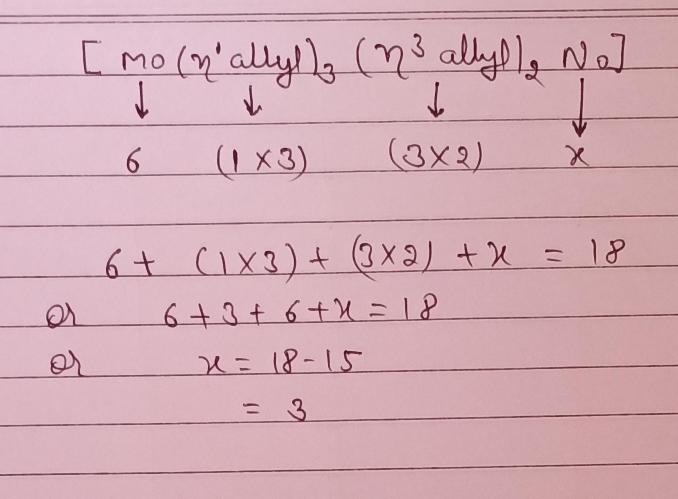 [Mo(η¹allyl)₃ (η³ allyl)₂ No]
↓ ↓ ↓ ↓
6 (1×3) (3×2) x
6+ (1×3)+(3×2)+x = 18
or 6+3+6+x=18
or x=18-15
= 3